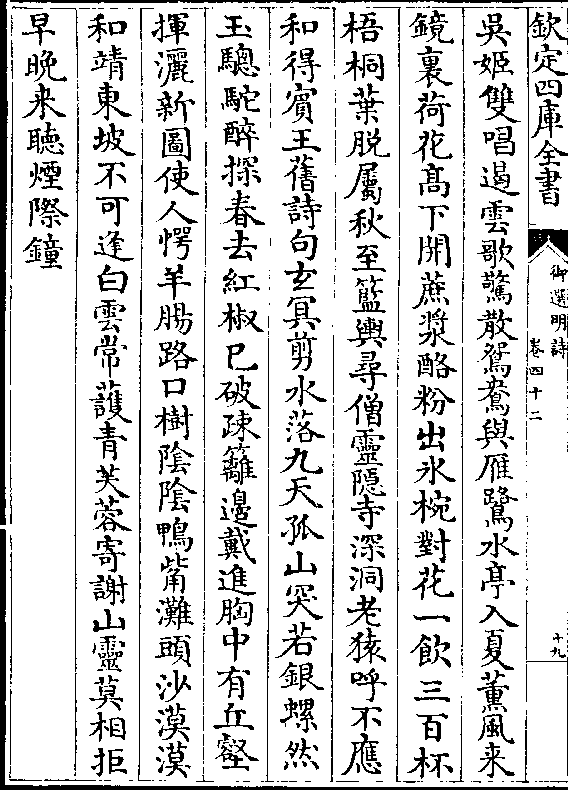 欽定四庫全書
御選明詩
卷四十二
十九
吳姬雙唱遏雲歌驚散鴛鴦與雁鷺水亭入夏薰風来
鏡裏荷花髙下開蔗漿酪粉出氷椀對花一飲三百杯
梧桐葉脱屬秋至籃輿尋僧靈隠寺深洞老猿呼不應
和得賓王舊詩句玄冥剪水落九天孤山突若銀螺然
玉驄駞醉探春去紅椒已破疎籬邊戴進胸中有丘壑
揮灑新圖使人愕羊腸路口樹隂隂鴨觜灘頭沙漠漠
和靖東坡不可逢白雲常䕶青芙蓉寄謝山靈莫相拒
早晚来聽煙際鐘